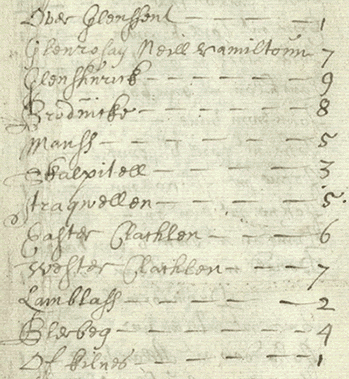 Over Glenssent — — — — 1
Glenrosay Neill Hamiltoun 7
Glenshirick — — — — 9
Brodwicke — — — — 8
Mauss — — — — — 5
Skalpitell — — — — 3
Stragwellen — — — — 5.
Easter Clachlen — — — 6
Wester Clachlen — — — 7
Lamblass — — — — — 2
Blerbeg — — — — — 4
Of kilnes — — — — — 1